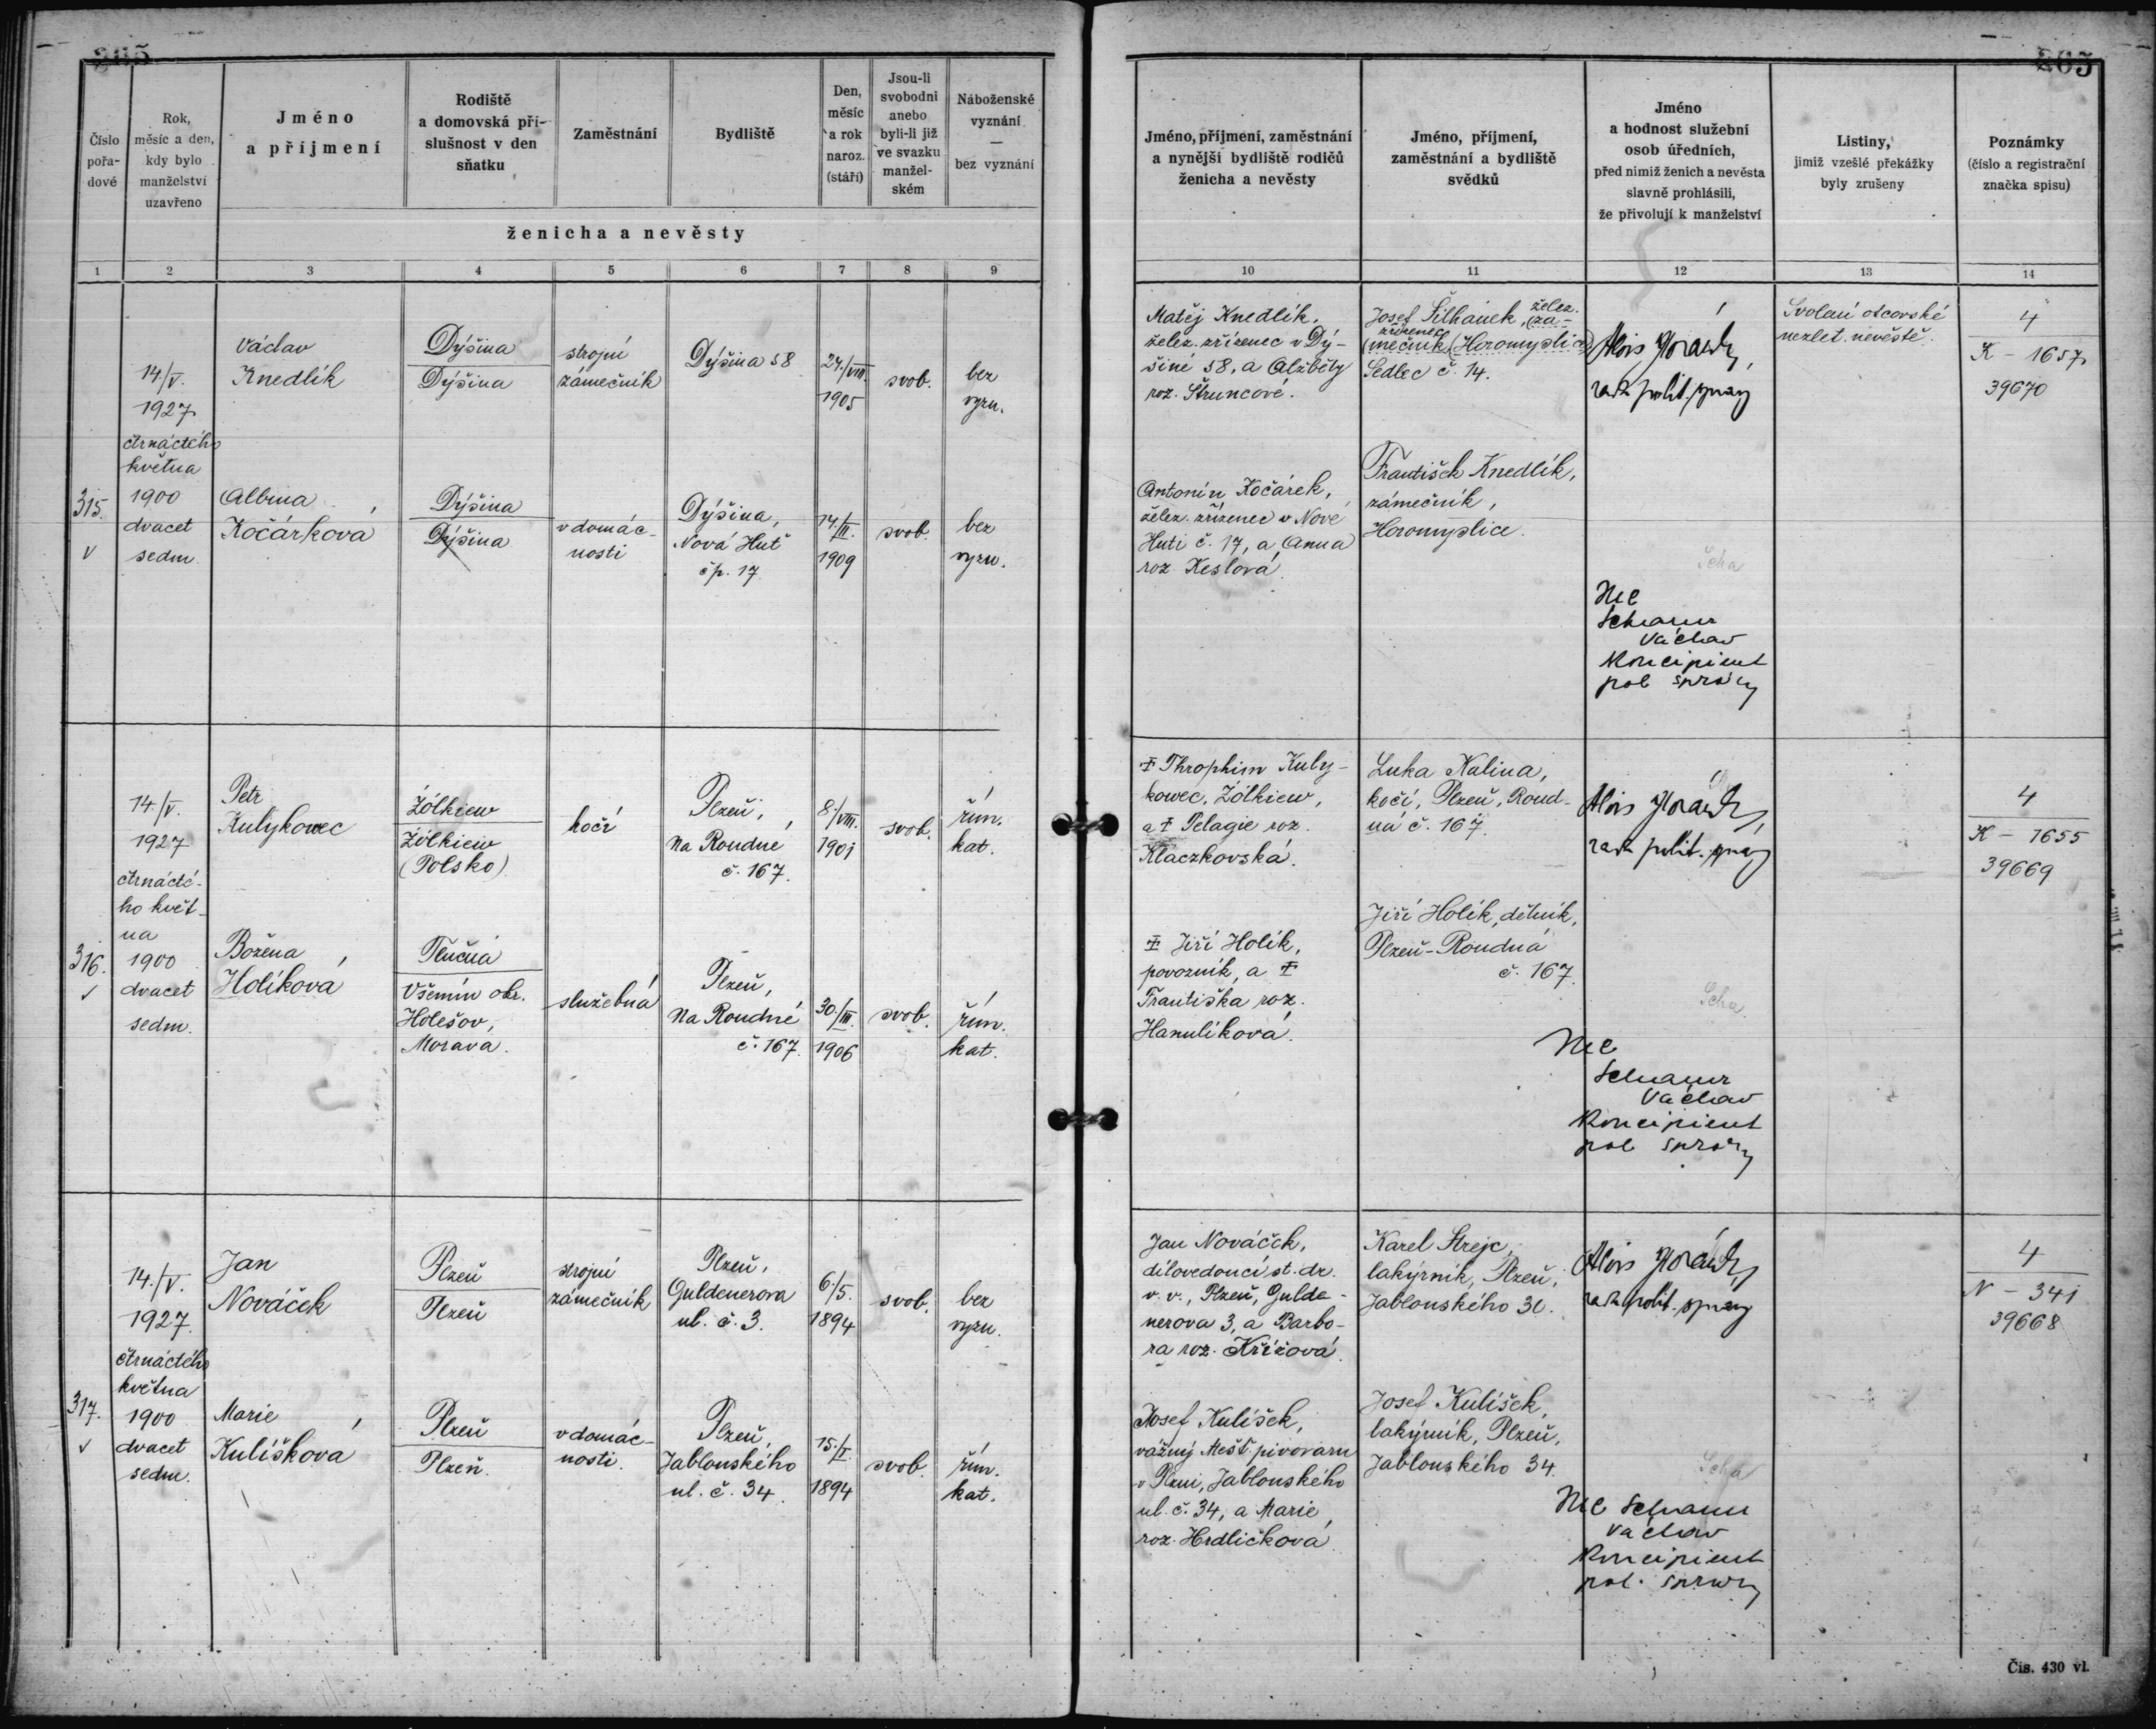 265
265
Číslo pořa-dové
Rok, měsíc a den, kdy bylo manželství uzavřeno
Jméno a příjmení
Rodiště a domovská pří-slušnost v den sňatku
Zaměstnání
Bydliště
Den, měsíc a rok naroz. (stáří)
Jsou-li svobodni anebo byli-li již ve svazku manžel-ském
Náboženské vyznání — bez vyznání
ženicha a nevěsty
Jméno, příjmení, zaměstnání a nynější bydliště rodičů ženicha a nevěsty
Jméno, příjmení, zaměstnání a bydliště svědků
Jméno a hodnost služební osob úředních, před nimiž ženich a nevěsta slavně prohlásili, že přivolují k manželství
Listiny, jimiž vzešlé překážky byly zrušeny
Poznámky (číslo a registrační značka spisu)
1 2 3 4 5 6 7 8 9 10 11 12 13 14
315.
v
14/V.
1927
čtrnáctého
května
1900
dvacet
sedm
Václav
Knedlík
Dýšina
Dýšina
strojní
zámečník
Dýšina 58
24./VIII.
1905
svob.
bez
vyzn.
Albina
Kočárková
Dýšina
Dýšina
v domác-
nosti
Dýšina,
Nová Huť
čp. 17
14./II.
1909
svob.
bez
vyzn.
Matěj Knedlík,
želez. zřízenec v Dý-
šině 58, a Alžběty
roz. Štruncové.
Antonín Kočárek,
želez. zřízenec v Nové
Huti č. 17, a Anna
roz. Keslová.
želez.
Josef Šilhánek, (zá-
zřízenec
(mečník, (Horomyslice)
Sedlec č. 14.
František Knedlík,
zámečník,
Horomyslice.
Alois
rada polit. správy
Scha
Václav
Koncipient
pol správy
Svolení otcovské
nezlet. nevěstě.
4
K - 1657
39670
316.
✓
14/V.
1927
čtrnácté-
ho květ-
na
1900
dvacet
sedm.
Petr
Kulykowec
Żółkiew
Żółkiew
(Polsko)
kočí
Plzeň,
Na Roudné
č. 167.
8./VIII.
1901
svob.
řím.
kat.
Božena
Holíková
Tlučná
Všemín okr.
Holešov,
Morava.
služebná
Plzeň,
Na Roudné
č. 167.
30./III.
1906
svob.
řím.
kat.
† Throphim Kuly-
kowec, Żółkiew,
a † Pelagie roz.
Klaczkovská.
† Jiří Holík,
povozník, a †
Františka roz.
Hanulíková.
Luka Kalina,
kočí, Plzeň, Roud-
ná č. 167.
Jiří Holík, dělník,
Plzeň-Roudná
č. 167.
Alois
rada polit. správy
Scha
Václav
Koncipient
pol správy
4
K - 1655
39669
317.
v
14./V.
1927.
čtrnáctého
května
1900
dvacet
sedm.
Jan
Nováček
Plzeň
Plzeň
strojní
zámečník
Plzeň,
Guldenerova
ul. č. 3.
6./5.
1894
svob.
bez
vyzn.
Marie
Kulíšková
Plzeň
Plzeň.
v domác-
nosti.
Plzeň,
Jablonského
ul. č. 34.
15./I.
1894
svob.
řím.
kat.
Jan Nováček,
dílovedoucí st. dr.
v. v., Plzeň, Gulde-
nerova 3, a Barbo-
ra roz. Křížová.
Josef Kulíšek,
vážný Měšť. pivovaru
v Plzni, Jablonského
ul. č. 34, a Marie
roz. Hrdličková
Karel Strejc,
lakýrník, Plzeň,
Jablonského 30.
Josef Kulíšek,
lakýrník, Plzeň,
Jablonského 34.
Alois
rada polit. správy
Scha
Václav
Koncipient
pol. správy
4
N - 341
39668
Čís. 430 vl.